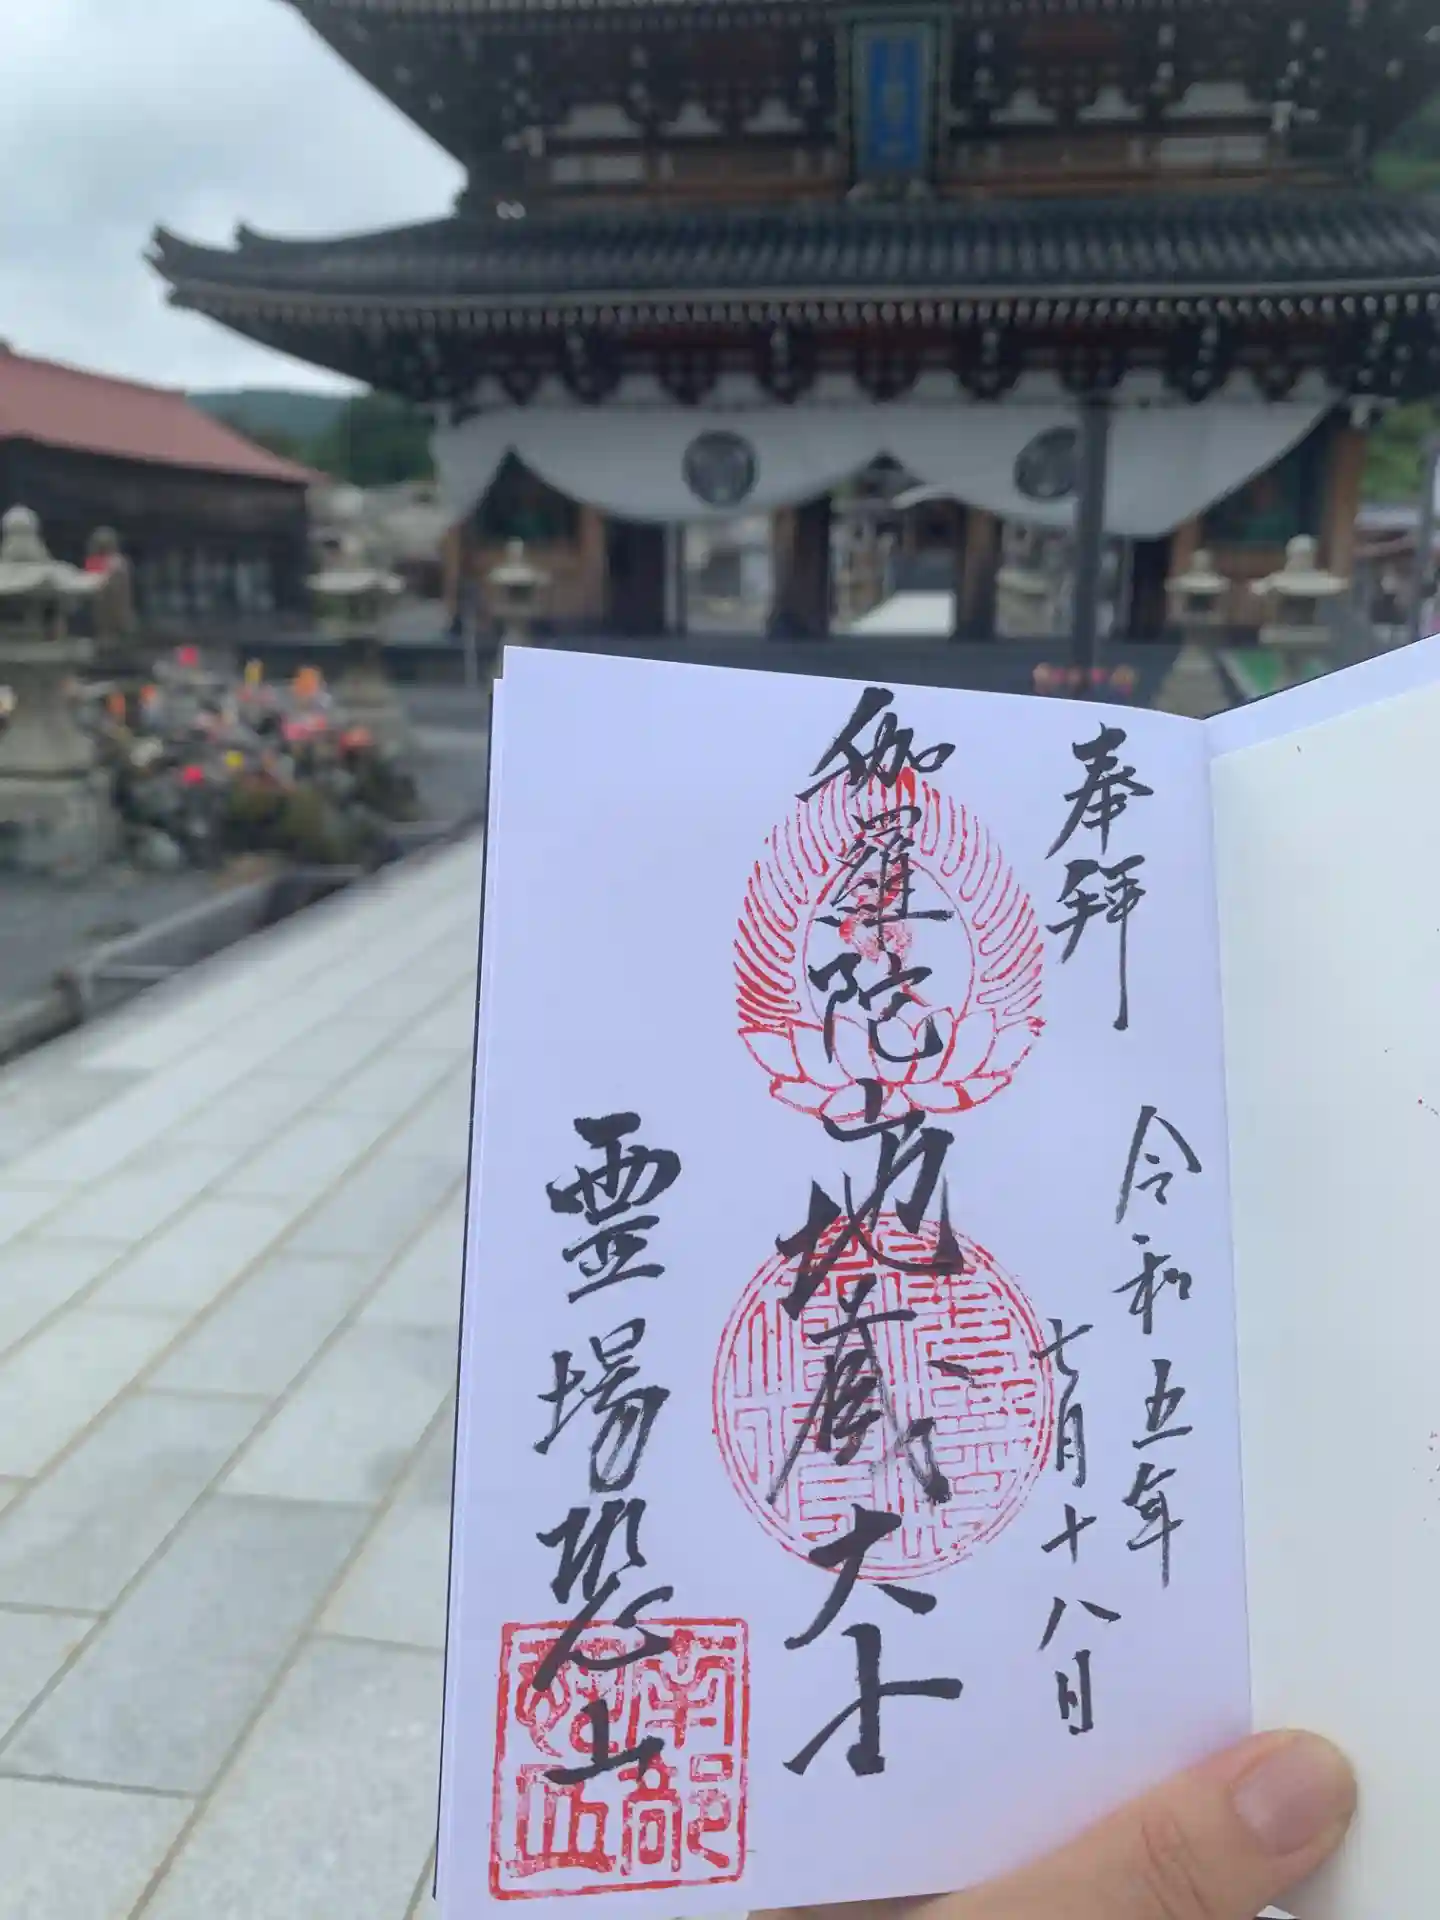 奉拝
令和五年
七月十八日
伽羅陀山地蔵大士
霊場恐山
南部